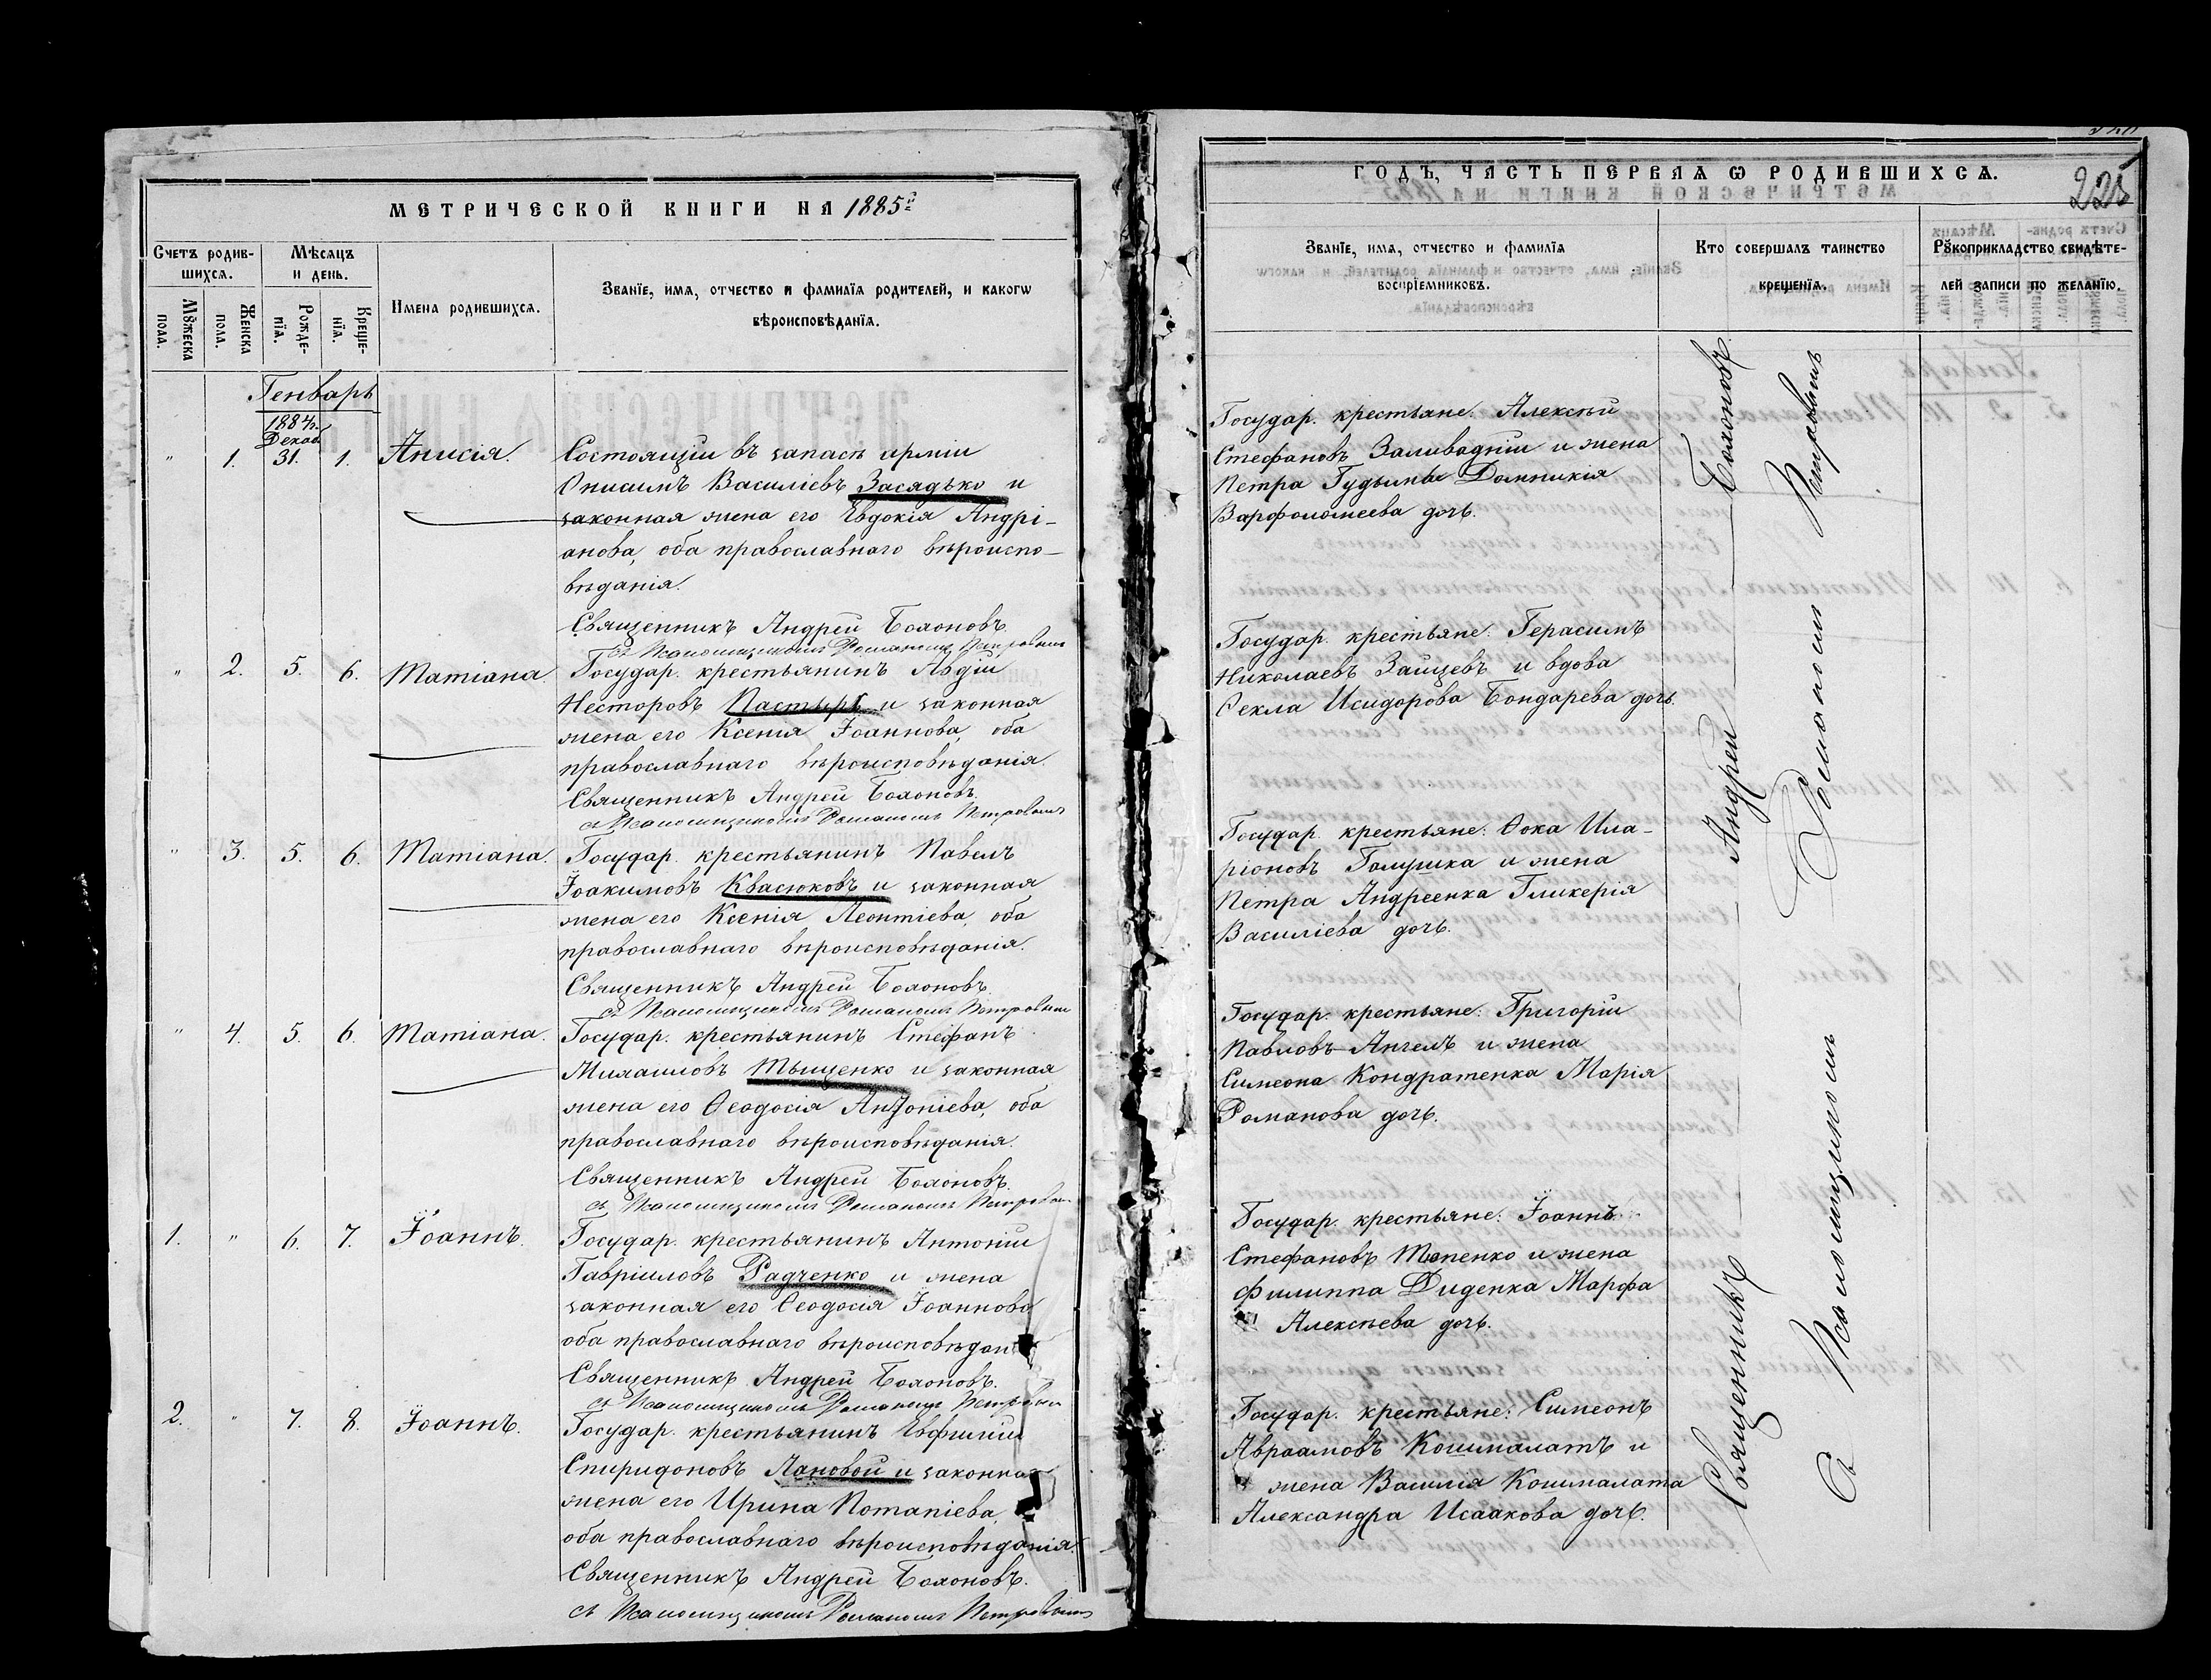 МЕТРИЧЕСКОЙ КНИГИ НА 1885й
Счетъ родив-
шихся.
Мѣсяцъ
и день.
Мꙋжеска
пола.
Женска
пола.
Рожде-
нїя.
Креще-
нїя.
Имена родившихся.
Званїе, имя, отчество и фамилїя родителей, и какогѡ
вѣроисповѣданїя.
Генварь
1884.
Декаб.
" 1. 31. 1. Анисія.
Состоящій въ запасѣ арміи
Онисимъ Василіевъ Засядько и
законная жена его Евдокія Андрі-
анова, оба православнаго вѣроиспо-
вѣданія.
Священникъ Андрей Бохоновъ.
съ Псаломщикомъ Романомъ Петровымъ
" 2. 5. 6. Татіана.
Государ. крестьянинъ Авдій
Несторовъ Пастырь и законная
жена его Ксенія Іоаннова, оба
православнаго вѣроисповѣданія.
Священникъ Андрей Бохоновъ.
съ Псаломщикомъ Романомъ Петровымъ
" 3. 5. 6. Татіана.
Государ. крестьянинъ Павелъ
Іоакимовъ Квасюковъ и законная
жена его Ксенія Леонтіева, оба
православнаго вѣроисповѣданія.
Священникъ Андрей Бохоновъ.
съ Псаломщикомъ Романомъ Петровымъ
" 4. 5. 6. Татіана.
Государ. крестьянинъ Стефанъ
Михаиловъ Тыщенко и законная
жена его Ѳеодосія Антоніева, оба
православнаго вѣроисповѣданія.
Священникъ Андрей Бохоновъ.
съ Псаломщикомъ Романомъ Петровым
1. " 6. 7. Іоаннъ.
Государ. крестьянинъ Антоній
Гавріиловъ Радченко и жена
законная его Ѳеодосія Іоаннова
оба православнаго вѣроисповѣдан
Священникъ Андрей Бохоновъ.
съ Псаломщикомъ Романомъ Петровым
2. " 7. 8. Іоаннъ.
Государ. крестьянинъ Евфимій
Спиридоновъ Лановой и законная
жена его Ирина Потапіева,
оба православнаго вѣроисповѣданія.
Священникъ Андрей Бохоновъ.
съ Псаломщикомъ Романомъ Петровымъ
ГОДЪ, ЧАСТЬ ПЕРВАЯ Ѡ РОДИВШИХСЯ.
225
Званїе, имя, отчество и фамилїя
воспрїемниковъ.
Кто совершалъ таинство
крещенїя.
Рꙋкоприкладство свидѣте-
лей записи по желанїю.
Государ. крестьяне: Алексѣй
Стефановъ Заливадній и жена
Петра Гудымы Домникія
Варфоломеева дочь.
Государ. крестьяне: Герасимъ
Николаевъ Зайцевъ и вдова
Ѳекла Исидорова Бондарева дочь.
Государ. крестьяне: Ѳока Ила-
ріоновъ Галушка и жена
Петра Андреенка Гликерія
Василіева дочь.
Государ. крестьяне: Григорій
Павловъ Ангелъ и жена
Симеона Кондратенка Марія
Романова дочь.
Государ. крестьяне: Іоаннъ
Стефановъ Тепенко и жена
Филиппа Диденка Марфа
Алексѣева дочь.
Государ. крестьяне: Симеонъ
Авраамовъ Кошпалатъ и
жена Василія Кошпалата
Александра Исаакова дочь.
Священникъ Андрей Бохоновъ
съ Псаломщикомъ Романомъ Петровымъ